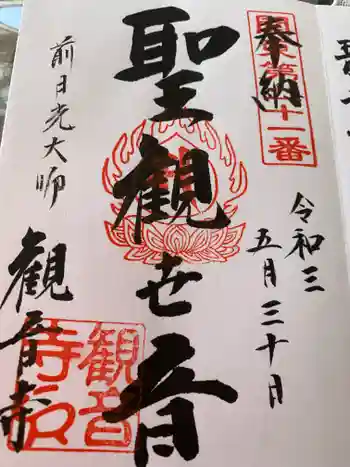 奉納
第十一番
令和三
五月三十日
聖観世音
前日光大師
観音寺
観音
寺印